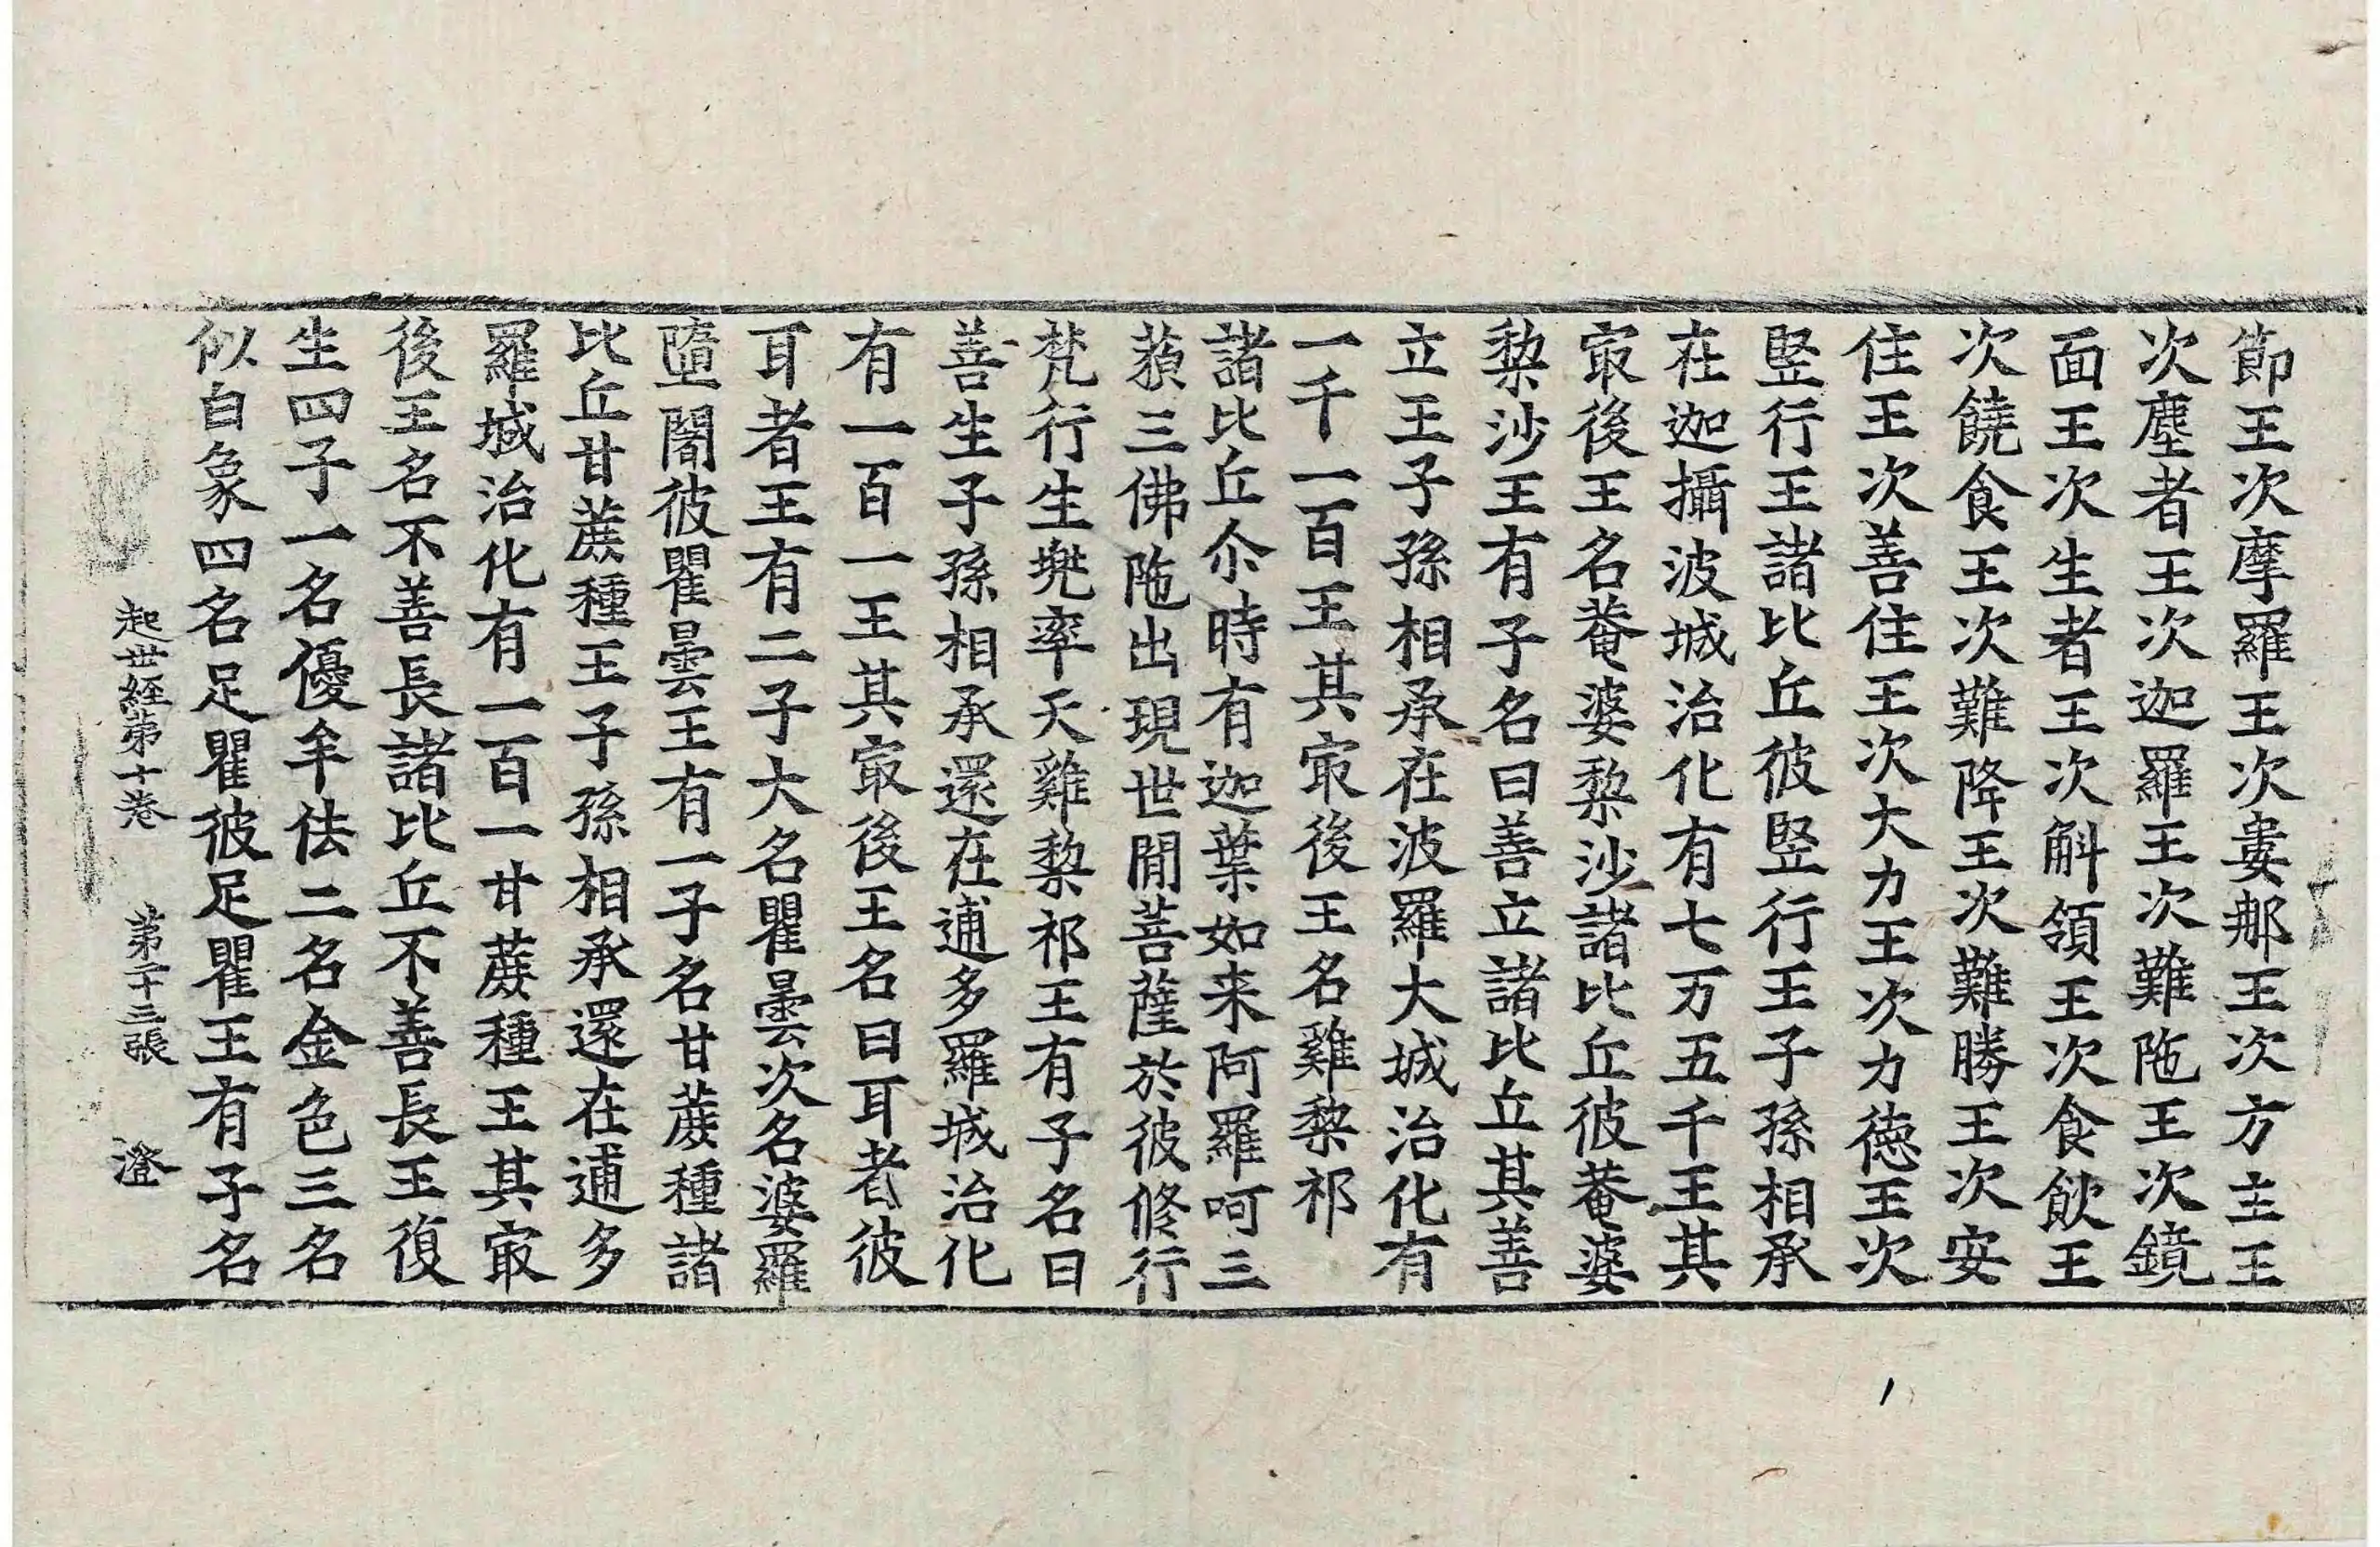 節王次摩羅王次婁郍王次方主王
次塵者王次迦羅王次難陁王次鏡
面王次生者王次斛領王次食飲王
次饒食王次難降王次難勝王次安
住王次善住王次大力王次力徳王次
竪行王諸比丘彼竪行王子孫相承
在迦攝波城治化有七万五千王其
冣後王名菴婆棃沙諸比丘彼菴婆
棃沙王有子名曰善立諸比丘其善
立王子孫相承在波羅大城治化有
一千一百王其冣後王名雞棃祁
諸比丘尒時有迦葉如来阿羅呵三
藐三佛陁出現世閒菩薩於彼修行
梵行生兠率天雞棃祁王有子名曰
善生子孫相承還在逋多羅城治化
有一百一王其冣後王名曰耳者彼
耳者王有二子大名瞿曇次名婆羅
墮闍彼瞿曇王有一子名甘蔗種諸
比丘甘蔗種王子孫相承還在逋多
羅城治化有一百一甘蔗種王其冣
後王名不善長諸比丘不善長王復
生四子一名優牟佉二名金色三名
似白象四名足瞿彼足瞿王有子名
起世経第十卷 第二十三張 澄